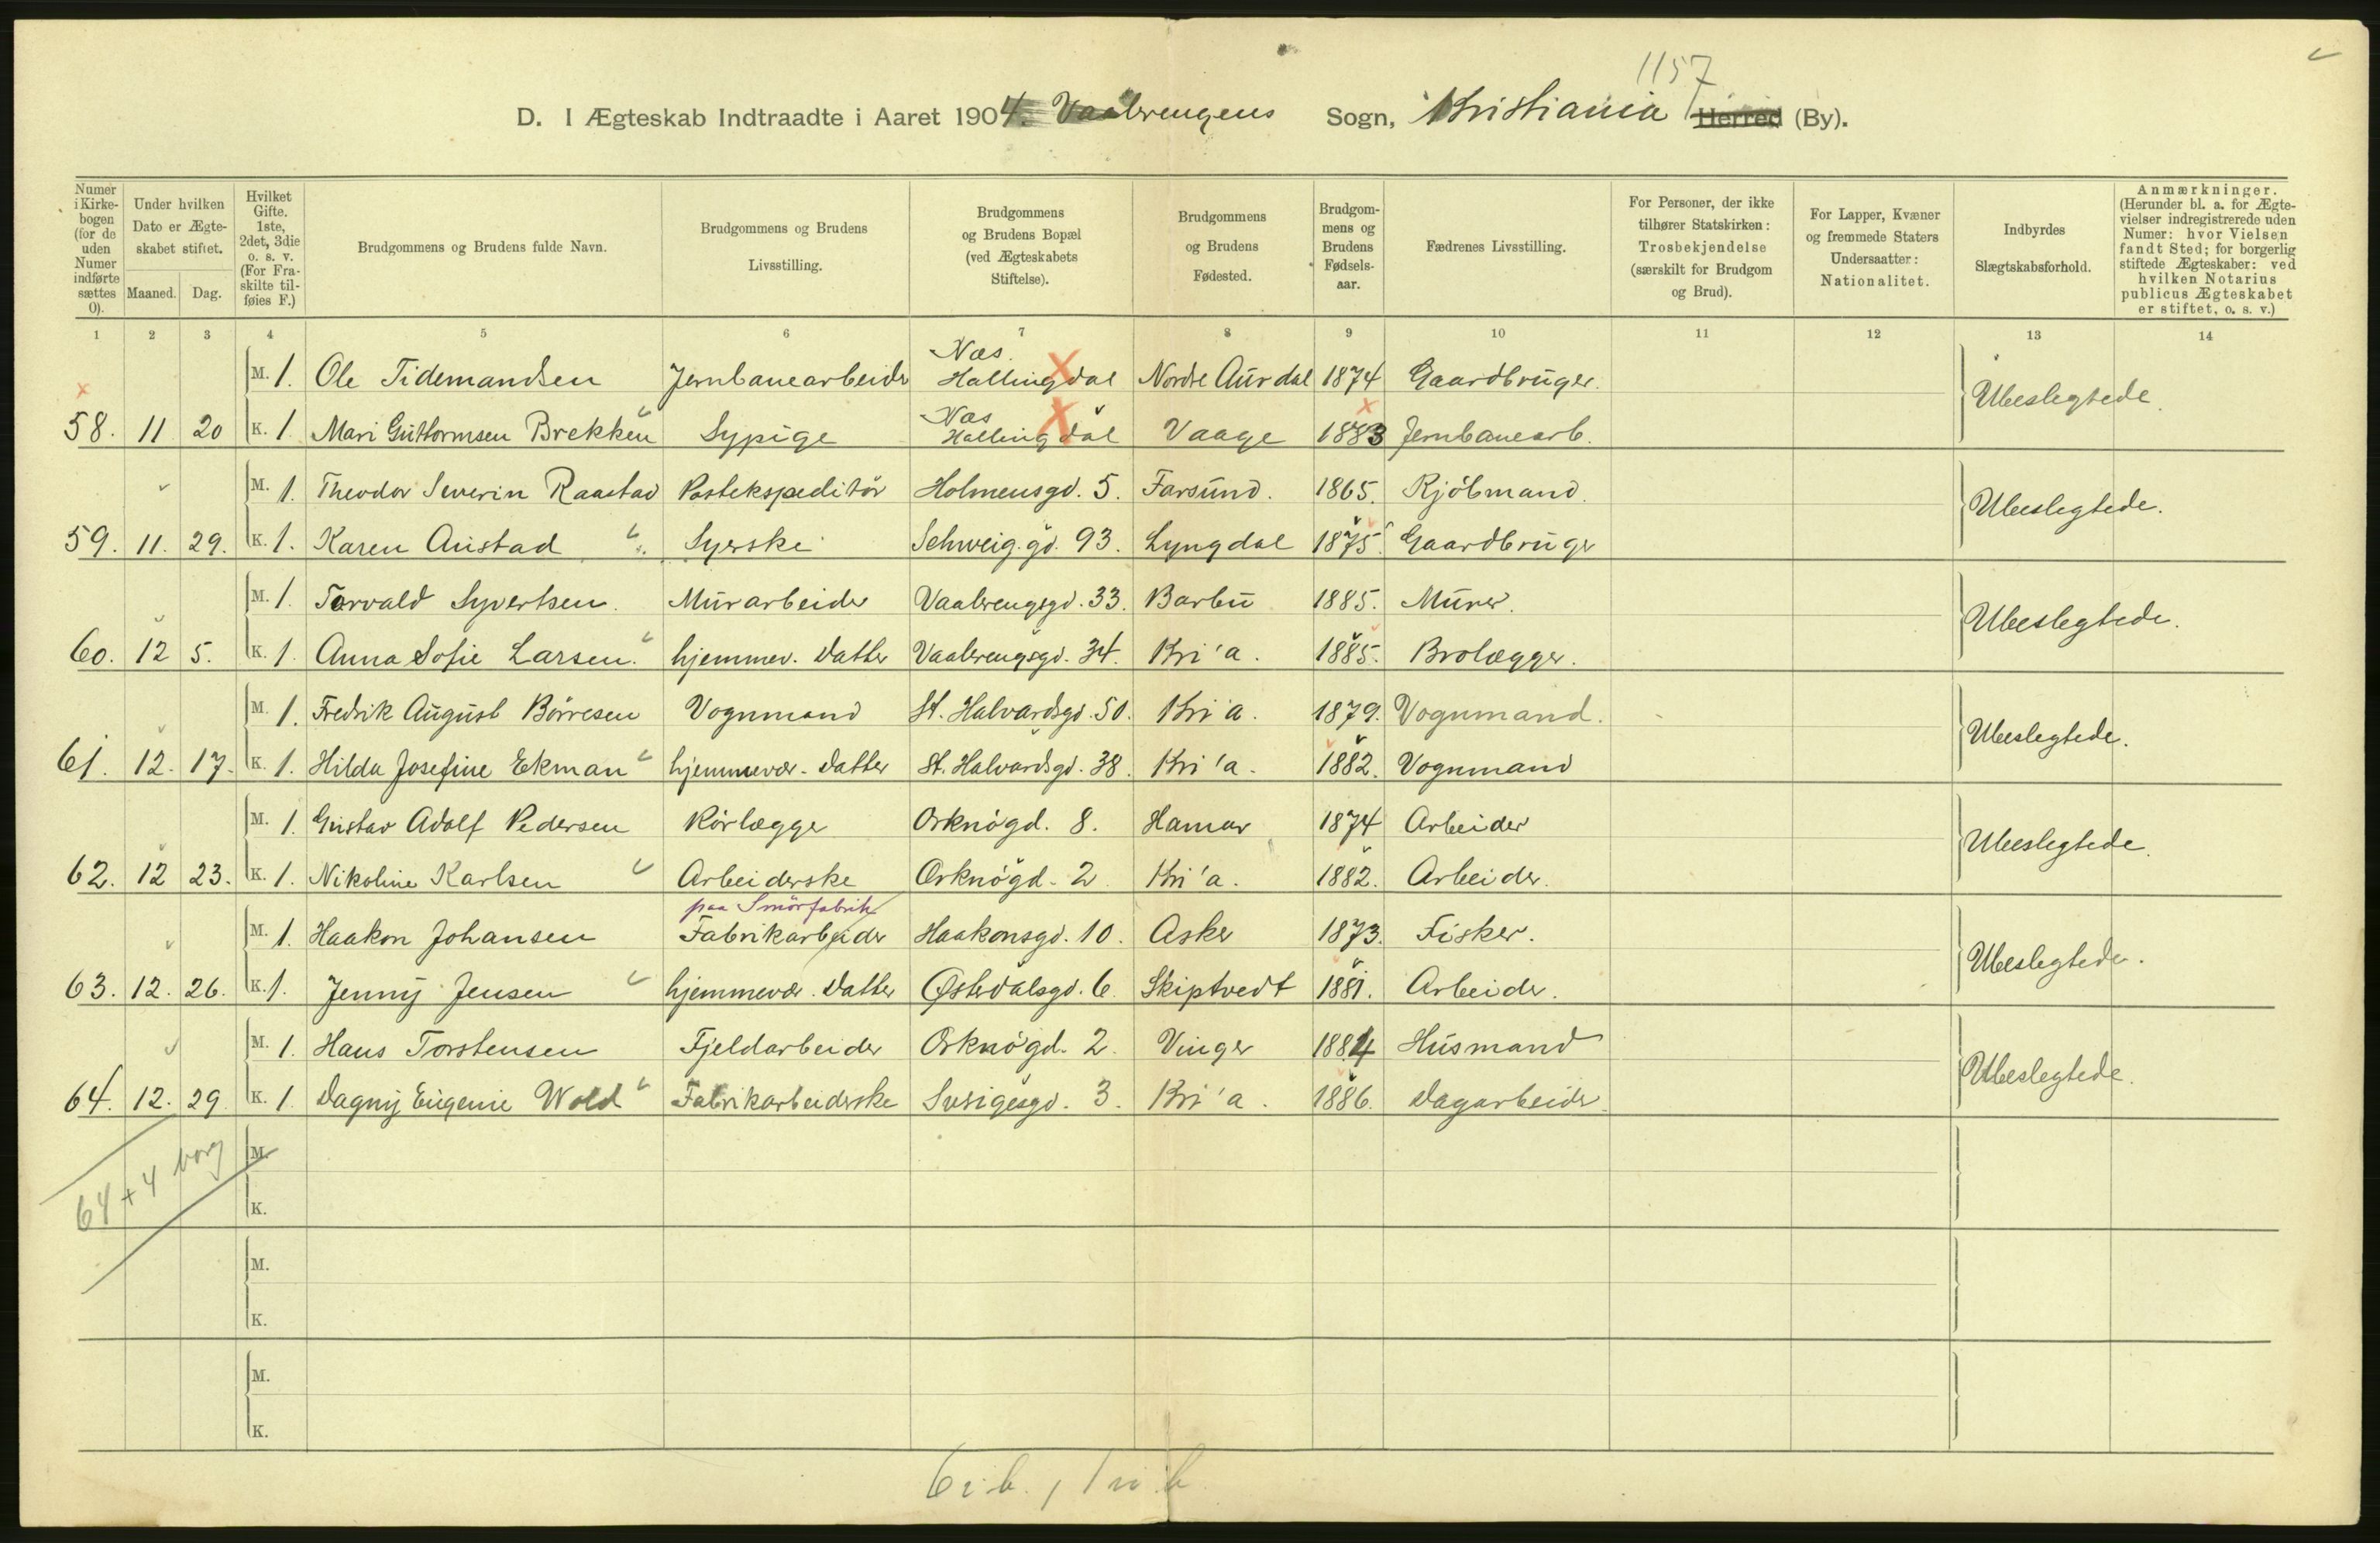 1157
D. I Ægteskab Indtraadte i Aaret 1904. Vaalerengens Sogn, Kristiania Herred (By).
Numer i Kirkebogen (for de uden Numer indførte sættes 0).
Under hvilken Dato er Ægteskabet stiftet.
Maaned. Dag.
Hvilket Gifte. 1ste, 2det, 3die o. s. v. (For Fraskilte tilføies F.)
Brudgommens og Brudens fulde Navn.
Brudgommens og Brudens Livsstilling.
Brudgommens og Brudens Bopæl (ved Ægteskabets Stiftelse).
Brudgommens og Brudens Fødested.
Brudgommens og Brudens Fødselsaar.
Fædrenes Livsstilling.
For Personer, der ikke tilhører Statskirken: Trosbekjendelse (særskilt for Brudgom og Brud).
For Lapper, Kvæner og fremmede Staters Undersaatter: Nationalitet.
Indbyrdes Slægtskabsforhold.
Anmærkninger. (Herunder bl. a. for Ægtevielser indregistrerede uden Numer: hvor Vielsen fandt Sted; for borgerlig stiftede Ægteskaber: ved hvilken Notarius publicus Ægteskabet er stiftet, o. s. v.)
1 2 3 4 5 6 7 8 9 10 11 12 13 14
M. 1. Ole Tidemandsen Jernbanearbeider Næs. Hallingdal Nordre Aurdal 1874 Gaardbruger.
Ubeslegtede.
58. 11 20 K. 1 Mari Guttormsen Brekken Sypige Næs Hallingdal Vaage 1883 Jernbanearb.
M. 1. Theodor Severin Raastad Postekspeditør Holmensgd. 5. Farsund. 1865. Kjøbmand.
Ubeslegtede.
59. 11. 29. K. 1. Karen Austad Syerske Schweig.gd. 93. Lyngdal 1875. Gaardbruger
M. 1. Torvald Syvertsen. Murarbeider Vaalerengsgd. 33. Barbu 1885. Murer.
Ubeslegtede.
60. 12 5. K. 1. Anna Sofie Larsen. hjemmev. Datter Vaalerengsgd. 34. Kri'a. 1885. Brolægger.
M. 1. Fredrik August Børresen Vognmand St. Halvardsgd. 50. Kri'a. 1879. Vognmand.
Ubeslegtede.
61. 12. 17. K. 1. Hilda Josefine Ekman hjemmevær. Datter St. Halvardsgd. 38. Kri'a. 1882. Vognmand
M. 1. Gustav Adolf Pedersen Rørlægger Orknøgd. 8. Hamar 1874 Arbeider
Ubeslegtede.
62. 12 23. K. 1. Nikoline Karlsen Arbeiderske Orknøgd. 2 Kri'a. 1882. Arbeider.
paa Smörfabrik
M. 1. Haakon Johansen Fabrikarbeider Haakonsgd. 10. Asker 1873. Fisker.
Ubeslegtede.
63. 12. 26. K. 1. Jenny Jensen hjemmevær. Datter Østerdalsgd. 6. Skiptvedt 1881. Arbeider.
M. 1. Hans Torstensen Fjeldarbeider Orknøgd. 2. Vinger 1884 Husmand
Ubeslegtede.
64. 12. 29. K. 1. Dagny Eugenie Wold Fabrikarbeiderske Sverigesgd. 3. Kri'a. 1886. Dagarbeider.
64 + 4 borg
M.
K.
M.
K.
M.
K.
6 i.b., 1 u.b.